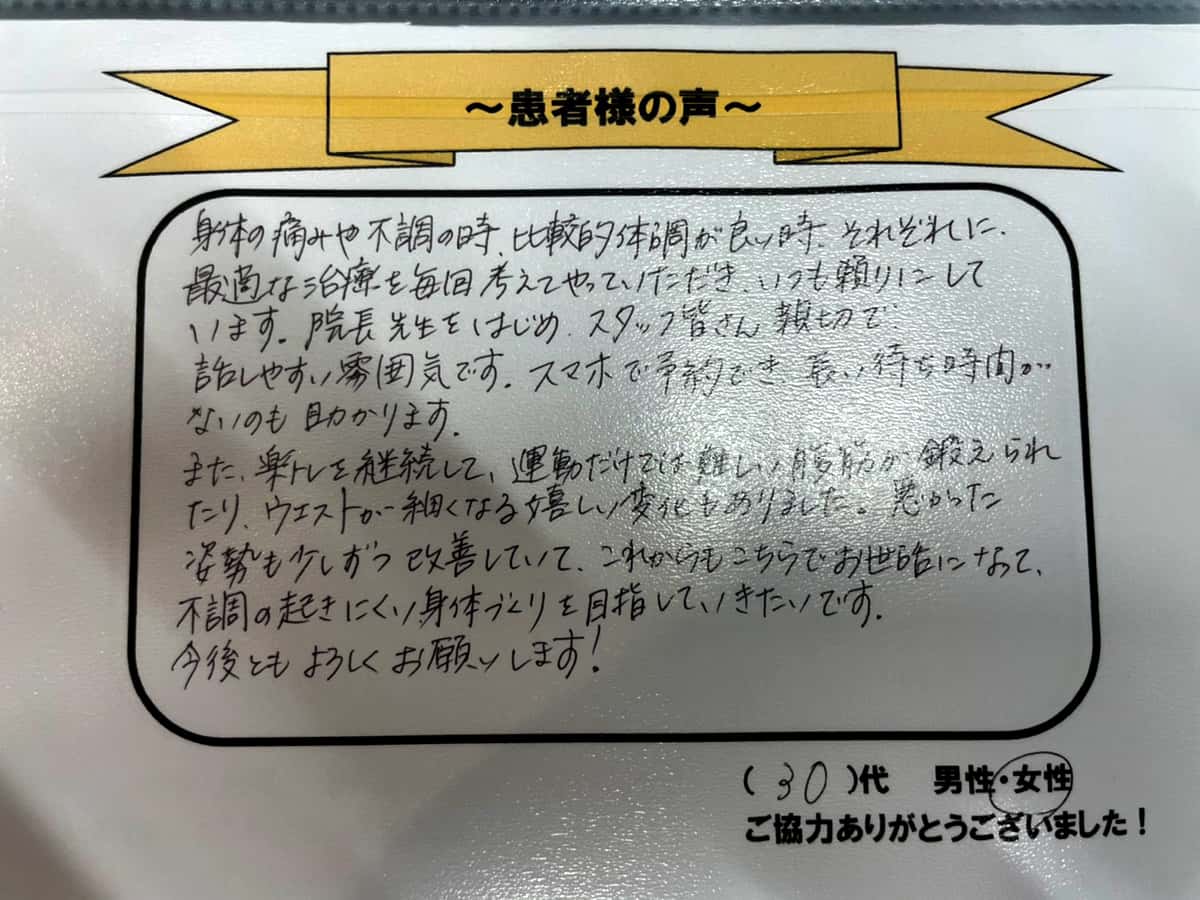 ～患者様の声～
身体の痛みや不調の時、比較的体調が良い時、それぞれに、
最適な治療を毎回考えてやっていただき、いつも頼りにして
います。院長先生をはじめ、スタッフ皆さん親切で、
話しやすい雰囲気です。スマホで予約でき、長い待ち時間が
ないのも助かります。
また、楽トレを継続して、運動だけでは難しい腹筋が鍛えられ
たり、ウエストが細くなる嬉しい変化もありました。悪かった
姿勢も少しずつ改善していて、これからもこちらでお世話になって、
不調の起きにくい身体づくりを目指していきたいです。
今後ともよろしくお願いします！
（30）代 男性・女性
ご協力ありがとうございました！